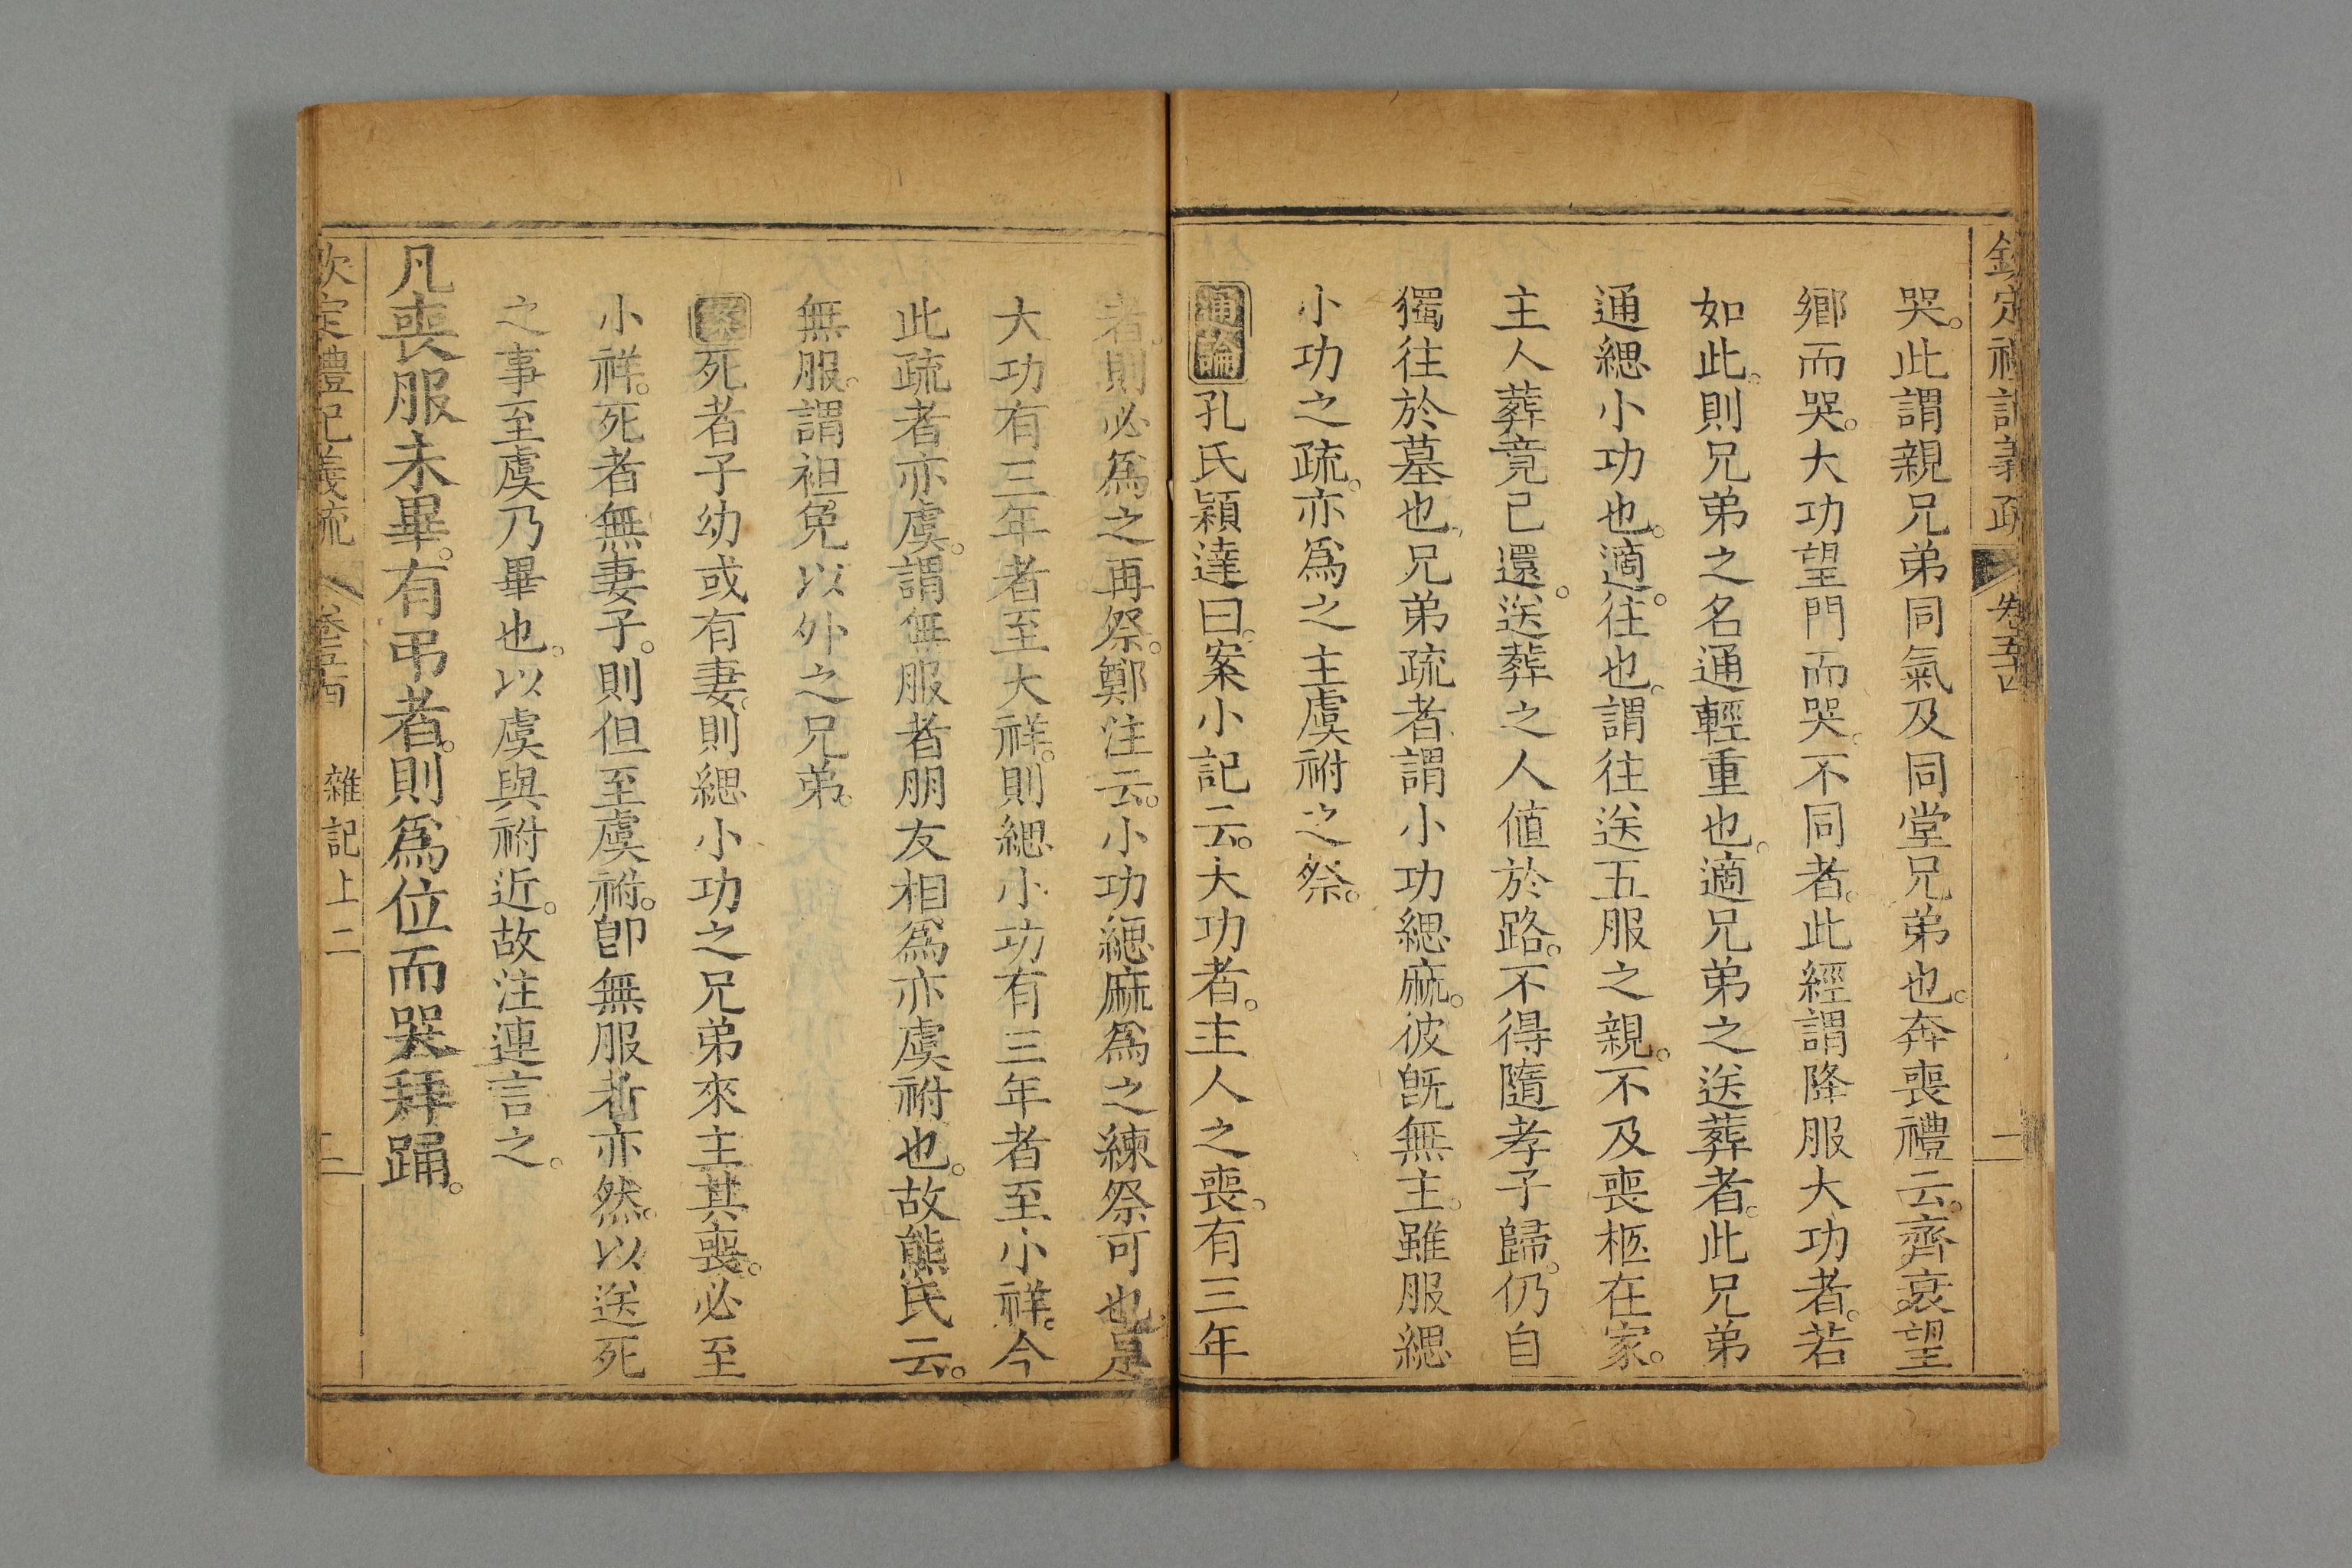 欽定禮記義疏 卷五十四 一
哭。此謂親兄弟同氣及同堂兄弟也。奔喪禮云。齊衰望
鄉而哭。大功望門而哭。不同者。此經謂降服大功者。若
如此。則兄弟之名通輕重也。適兄弟之送葬者。此兄弟
通緦小功也。適。往也。謂往送五服之親。不及喪柩在家。
主人葬竟已還。送葬之人值於路。不得隨孝子歸。仍自
獨往於墓也。兄弟疏者。謂小功緦麻。彼既無主。雖服緦
小功之疏。亦為之主虞祔之祭。
通論孔氏穎達曰。案小記云。大功者。主人之喪。有三年
者。則必為之再祭。鄭注云。小功緦麻為之練祭可也。是
大功有三年者至大祥。則緦小功有三年者至小祥。今
此疏者亦虞。謂無服者朋友相為亦虞祔也。故熊氏云。
無服。謂袒免以外之兄弟。
案死者子幼或有妻。則緦小功之兄弟來主其喪。必至
小祥。死者無妻子。則但至虞祔。卽無服者亦然。以送死
之事至虞乃畢也。以虞與祔近。故注連言之。
凡喪服未畢。有弔者。則為位而哭拜踊。
欽定禮記義疏 卷五十四 雜記上二 二